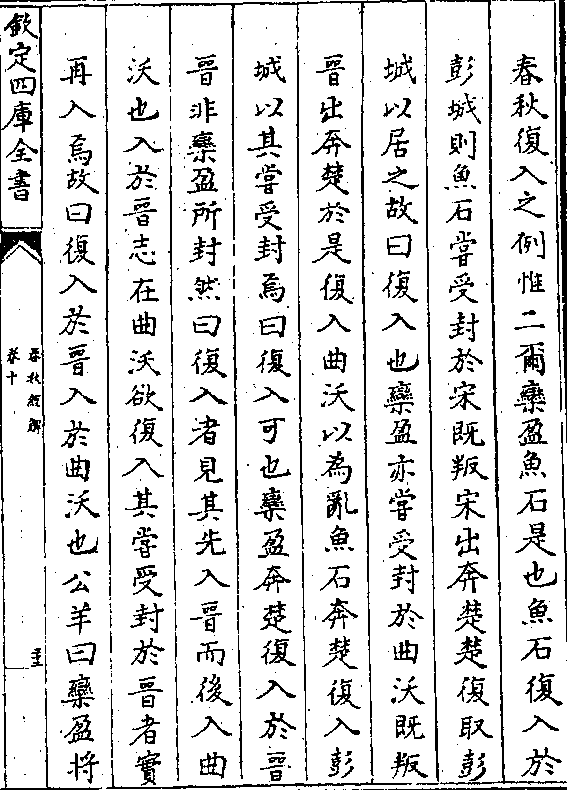 春秋復入之例惟二爾欒盈魚石是也魚石復入於
彭城則魚石嘗受封於宋既叛宋出奔楚楚復取彭
城以居之故曰復入也欒盈亦嘗受封於曲沃既叛
晉出奔楚於是復入曲沃以為亂魚石奔楚復入彭
城以其嘗受封焉曰復入可也欒盈奔楚復入於晉
晉非欒盈所封然曰復入者見其先入晉而後入曲
沃也入於晉志在曲沃欲復入其嘗受封於晉者實
再入焉故曰復入於晉入於曲沃也公羊曰欒盈將
欽定四庫全書
春秋經解
卷十